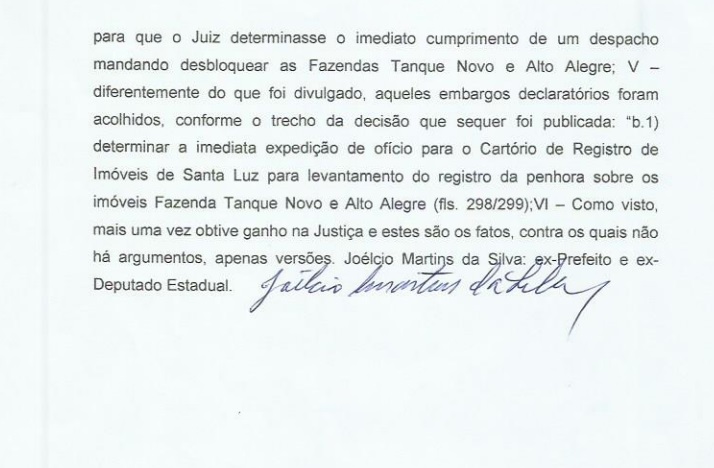 para que o Juiz determinasse o imediato cumprimento de um despacho
mandando desbloquear as Fazendas Tanque Novo e Alto Alegre; V –
diferentemente do que foi divulgado, aqueles embargos declaratórios foram
acolhidos, conforme o trecho da decisão que sequer foi publicada: “b.1)
determinar a imediata expedição de ofício para o Cartório de Registro de
Imóveis de Santa Luz para levantamento do registro da penhora sobre os
imóveis Fazenda Tanque Novo e Alto Alegre (fls. 298/299);VI – Como visto,
mais uma vez obtive ganho na Justiça e estes são os fatos, contra os quais não
há argumentos, apenas versões. Joélcio Martins da Silva: ex-Prefeito e ex-
Deputado Estadual.
Joélcio Martins da Silva